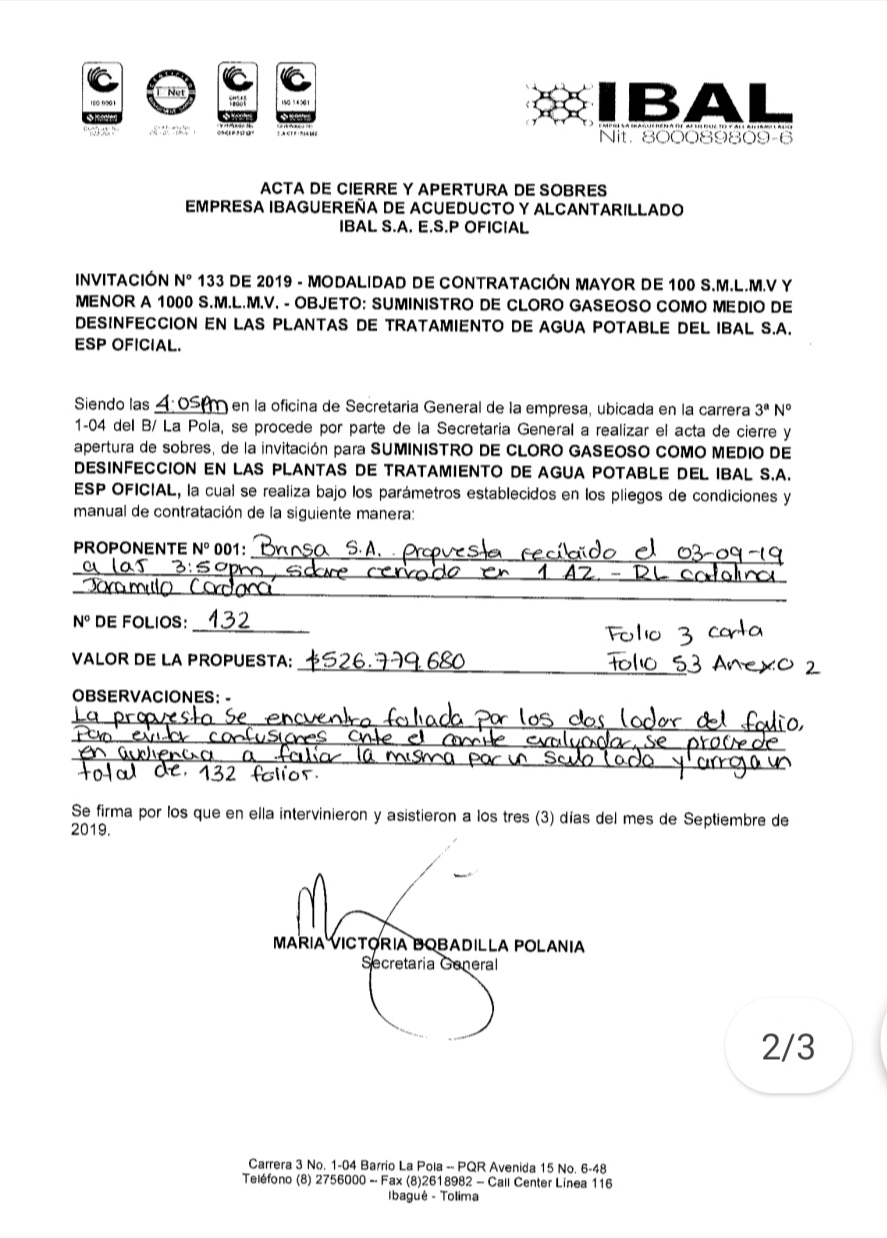 ISO 9001
I Net
OHSAS 18001
ISO 14001
IBAL
EMPRESA IBAGUEREÑA DE ACUEDUCTO Y ALCANTARILLADO
Nit. 800089809-6
ACTA DE CIERRE Y APERTURA DE SOBRES
EMPRESA IBAGUEREÑA DE ACUEDUCTO Y ALCANTARILLADO
IBAL S.A. E.S.P OFICIAL
INVITACIÓN Nº 133 DE 2019 - MODALIDAD DE CONTRATACIÓN MAYOR DE 100 S.M.L.M.V Y
MENOR A 1000 S.M.L.M.V. - OBJETO: SUMINISTRO DE CLORO GASEOSO COMO MEDIO DE
DESINFECCION EN LAS PLANTAS DE TRATAMIENTO DE AGUA POTABLE DEL IBAL S.A.
ESP OFICIAL.
Siendo las 4:05pm en la oficina de Secretaria General de la empresa, ubicada en la carrera 3ª Nº
1-04 del B/ La Pola, se procede por parte de la Secretaria General a realizar el acta de cierre y
apertura de sobres, de la invitación para SUMINISTRO DE CLORO GASEOSO COMO MEDIO DE
DESINFECCION EN LAS PLANTAS DE TRATAMIENTO DE AGUA POTABLE DEL IBAL S.A.
ESP OFICIAL, la cual se realiza bajo los parámetros establecidos en los pliegos de condiciones y
manual de contratación de la siguiente manera:
PROPONENTE Nº 001: Brinsa S.A. propuesta recibido el 03-09-19
a las 3:50pm, sobre cerrado en 1 AZ - RL catalina
Jaramillo Cardona
Nº DE FOLIOS: 132
Folio 3 carta
VALOR DE LA PROPUESTA: $526.779.680 Folio 53 Anexo 2
OBSERVACIONES: -
La propuesta se encuentra foliada por los dos lados del folio,
para evitar confusiones ante el comite evaluador, se procede
en audiencia a foliar la misma por un solo lado y arroja un
total de. 132 folios.
Se firma por los que en ella intervinieron y asistieron a los tres (3) días del mes de Septiembre de
2019.
MARIA VICTORIA BOBADILLA POLANIA
Secretaria General
2/3
Carrera 3 No. 1-04 Barrio La Pola – PQR Avenida 15 No. 6-48
Teléfono (8) 2756000 – Fax (8)2618982 – Call Center Línea 116
Ibagué - Tolima